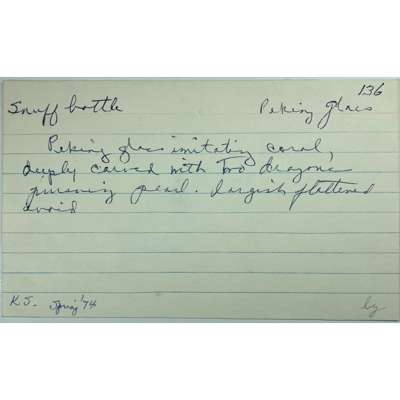 136
Snuff bottle Peking glass
Peking glass imitating coral,
deeply carved with two dragons
pursuing pearl. Largish flattened
ovoid
K.S. Spring '74
by